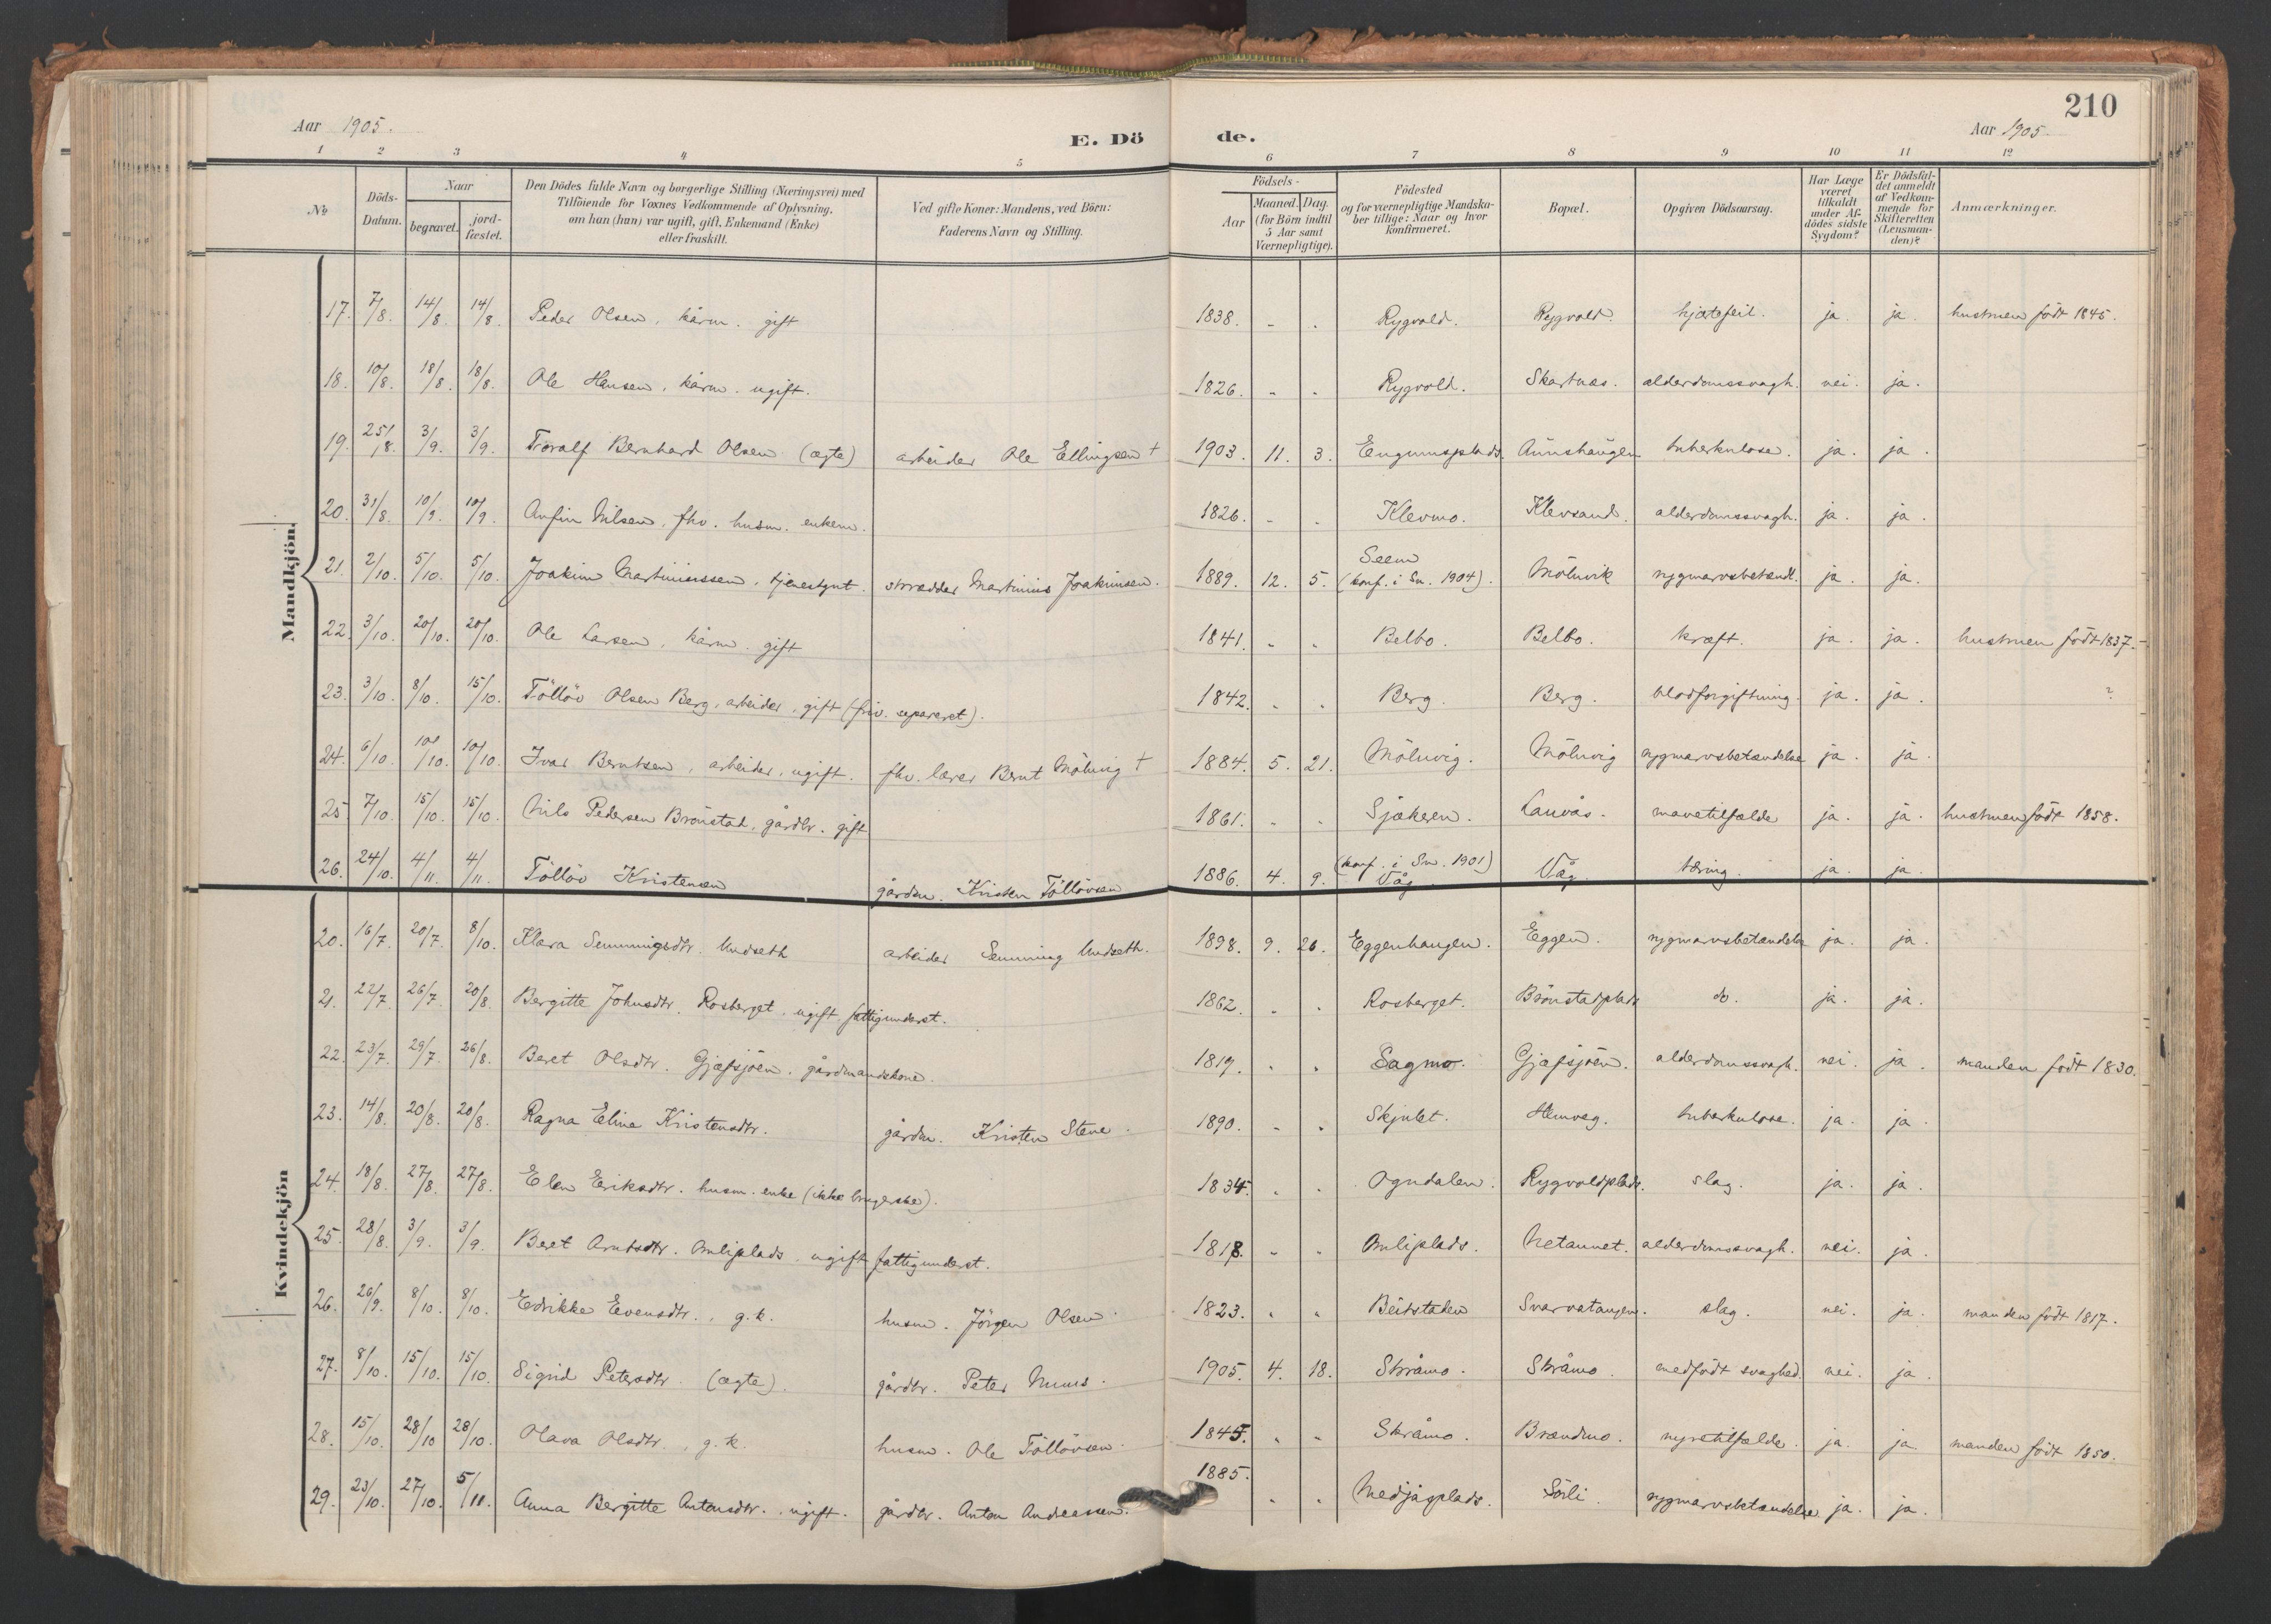 210
Aar 1905.
E. Dö de.
Aar 1905.
1 2 3 4 5 6 7 8 9 10 11 12
№
Döds-Datum.
Naar
begravet.
jord-fæstet.
Den Dödes fulde Navn og borgerlige Stilling (Næringsvei) med
Tilföiende for Voxnes Vedkommende af Oplysning,
om han (hun) var ugift, gift, Enkemand (Enke)
eller fraskilt.
Ved gifte Koner: Mandens, ved Börn:
Faderens Navn og Stilling.
Födsels-
Aar
Maaned. Dag.
(for Börn indtil
5 Aar samt
Værnepligtige).
Födested
og for værnepligtige Mandska-
ber tillige: Naar og hvor
konfirmeret.
Bopæl.
Opgiven Dödsaarsag.
Har Læge
været
tilkaldt
under Af-
dödes sidste
Sygdom?
Er Dödsfal-
det anmeldt
af Vedkom-
mende for
Skifteretten
(Lensman-
den)?
Anmærkninger.
Mandkjön.
17. 7/8. 14/8. 14/8. Peder Olsen, kårm. gift 1838. - - Rygvold. Rygvold. hjertefeil. ja. ja. hustruen født 1845.
18. 10/8. 18/8. 18/8. Ole Hansen, kårm. ugift. 1826. - - Rygvold. Skartnes. alderdomssvagh. nei. ja.
19. 25/8. 3/9. 3/9. Toralf Bernhard Olsen (ægte) arbeider Ole Ellingsen † 1903. 11. 3. Engumsplads. tuberkulose. ja. ja.
20. 31/8. 10/9. 10/9. Anfin Nilsen, fhv. husm. enkem. 1826. - - Klevmo. Klevsand. alderdomssvagh. ja. ja.
21. 2/10. 5/10. 5/10. Joakim Martiniussen, tjenestgut. skrædder Martinius Joakimsen. 1889. 12. 5. Seem (konf. i Sn. 1904). Mölnvik rygmarvsbetændl. ja. ja.
22. 3/10. 20/10. 20/10. Ole Larsen, kårm. gift 1841. - - Belbo. Belbo. kræft. ja. ja. hustruen født 1837.
23. 3/10. 8/10. 15/10. Töllöv Olsen Berg, arbeider, gift (friv. separeret). 1842. - - Berg. Berg. blodforgiftning. ja. ja. ?
24. 6/10. 10/10. 10/10. Ivar Berntsen, arbeider, ugift. fhv. lærer Bernt Mölnvig † 1884. 5. 21. Mölnvig. Mölnvig rygmarvsbetændelse ja. ja.
25. 7/10. 15/10. 15/10. Nils Pedersen Brönstad, gårdbr. gift 1861. - - Sjækeren. Lauvås. mavetilfælde ja. ja. hustruen født 1858.
26. 24/10. 4/11. 4/11. Töllöv Kristensen gårdm. Kristen Töllövsen 1886. 4. 9. (konf. i Sn. 1901) Våg. Våg. tæring. ja. ja.
Kvindekjön
20. 16/7. 20/7. 8/10. Klara Semmingsdtr. Undseth arbeider Semming Undseth. 1898. 9. 26. Eggenhaugen. Eggen. rygmarvsbetændelse ja. ja.
21. 22/7. 26/7. 20/8. Bergitte Johnsdtr. Rosberget, ugift fattigunderst. 1862. - - Rosberget. Brönstadplads do. ja. ja.
22. 23/7. 29/7. 26/8. Beret Olsdtr. Gjæfsjöen, gårdmandskone. 1819. - - Sagmo. Gjæfsjöen. alderdomssvagh. nei. ja. manden født 1830.
23. 14/8. 20/8. 20/8. Ragna Eline Kristensdtr. gårdm. Kristen Stene. 1890. - - Skjulet. Hemveg. tuberkulose. ja. ja.
24. 18/8. 27/8. 27/8. Elen Eriksdtr. husm. enke (ikke brugerske). 1834. - - Ogndalen. Rygvoldplads. slag. ja. ja.
25. 28/8. 3/9. 3/9. Beret Arntsdtr. Omliplads, ugift fattigunderst. 1818. - - Omliplads. Netaunet. alderdomssvagh. nei. ja.
26. 26/9. 8/10. 8/10. Edrikke Evensdtr., g.k. husm. Jörgen Olsen. 1823. - - Beitstaden Svarvatangen. slag. nei. ja. manden født 1817.
27. 8/10. 15/10. 15/10. Sigrid Petersdtr. (ægte). gårdbr. Peter 1905. 4. 18. Skråmo. Skråmo. medfødt svaghed. nei. ja.
28. 15/10. 28/10 28/10. Olava Olsdtr., g.k. husm. Ole Töllövsen. 1845. - - Skråmo. Brændmo. nyretilfælde. ja. ja. manden født 1850.
29. 23/10. 27/10. 5/11. Anna Bergitte Antonsdtr., ugift. gårdbr. Anton Andreassen. 1885. - - Medjåplads. Sörli. rygmarvsbetændelse. ja. ja.